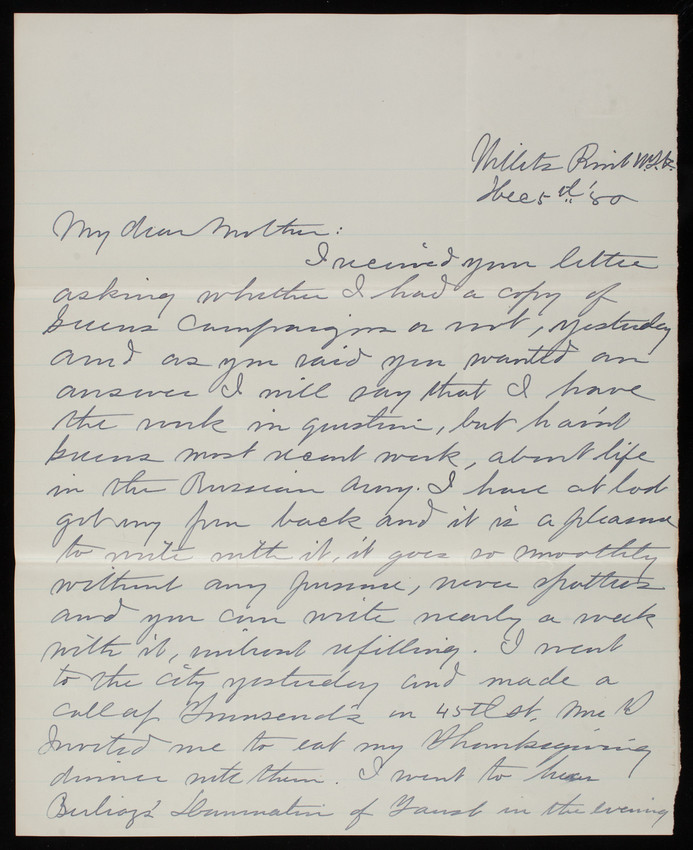 Willets Point N.Y.
Dec 5th '80
My dear Mother:
I received your letter
asking whether I had a copy of
Greens Campaigns or not, yesterday
and as you said you wanted an
answer I will say that I have
the work in question, but hav'nt
Greens most recent work, about life
in the Russian Army. I have at last
got my pen back and it is a pleasure
to write with it, it goes so smoothly
without any pressure, never spatters
and you can write nearly a week
with it, without refilling. I went
to the city yesterday and made a
call at Townsends on 45th St.
Invited me to eat my Thanksgiving
dinner with them. I went to hear
Berlioz's Damnation of Faust in the evening